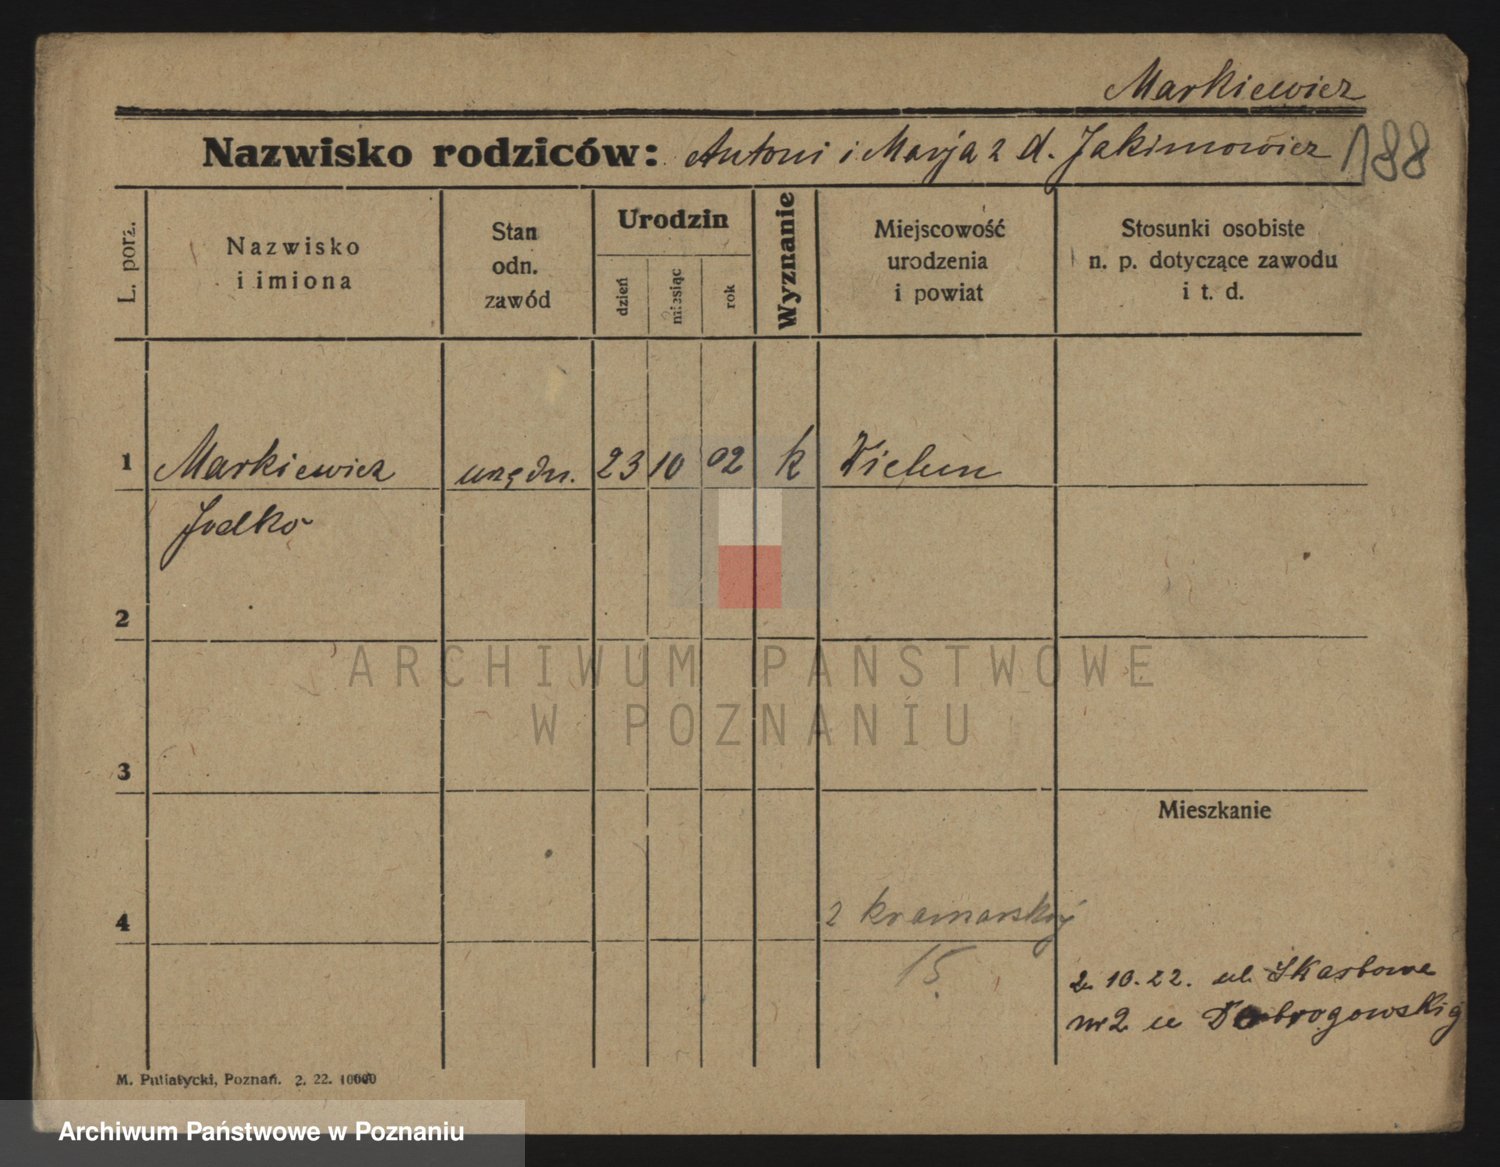 Markiewicz
Nazwisko rodziców: Antoni i Marja z d. Jakimowicz 188
L. porz.
Nazwisko
i imiona
Stan
odn.
zawód
Urodzin
dzień
miesiąc
rok
Wyznanie
Miejscowość
urodzenia
i powiat
Stosunki osobiste
n. p. dotyczące zawodu
i t. d.
1 Markiewicz urzędn. 23 10 02 k Wielun
Jodko
2
ARCHIWUM PAŃSTWOWE
W POZNANIU
3
Mieszkanie
4
z Kramarskiej
15
2.10.22. ul. Skarbowa
nr 2 u Dobrogowskiej
M. Putiatycki, Poznań. 2. 22. 10000
Archiwum Państwowe w Poznaniu